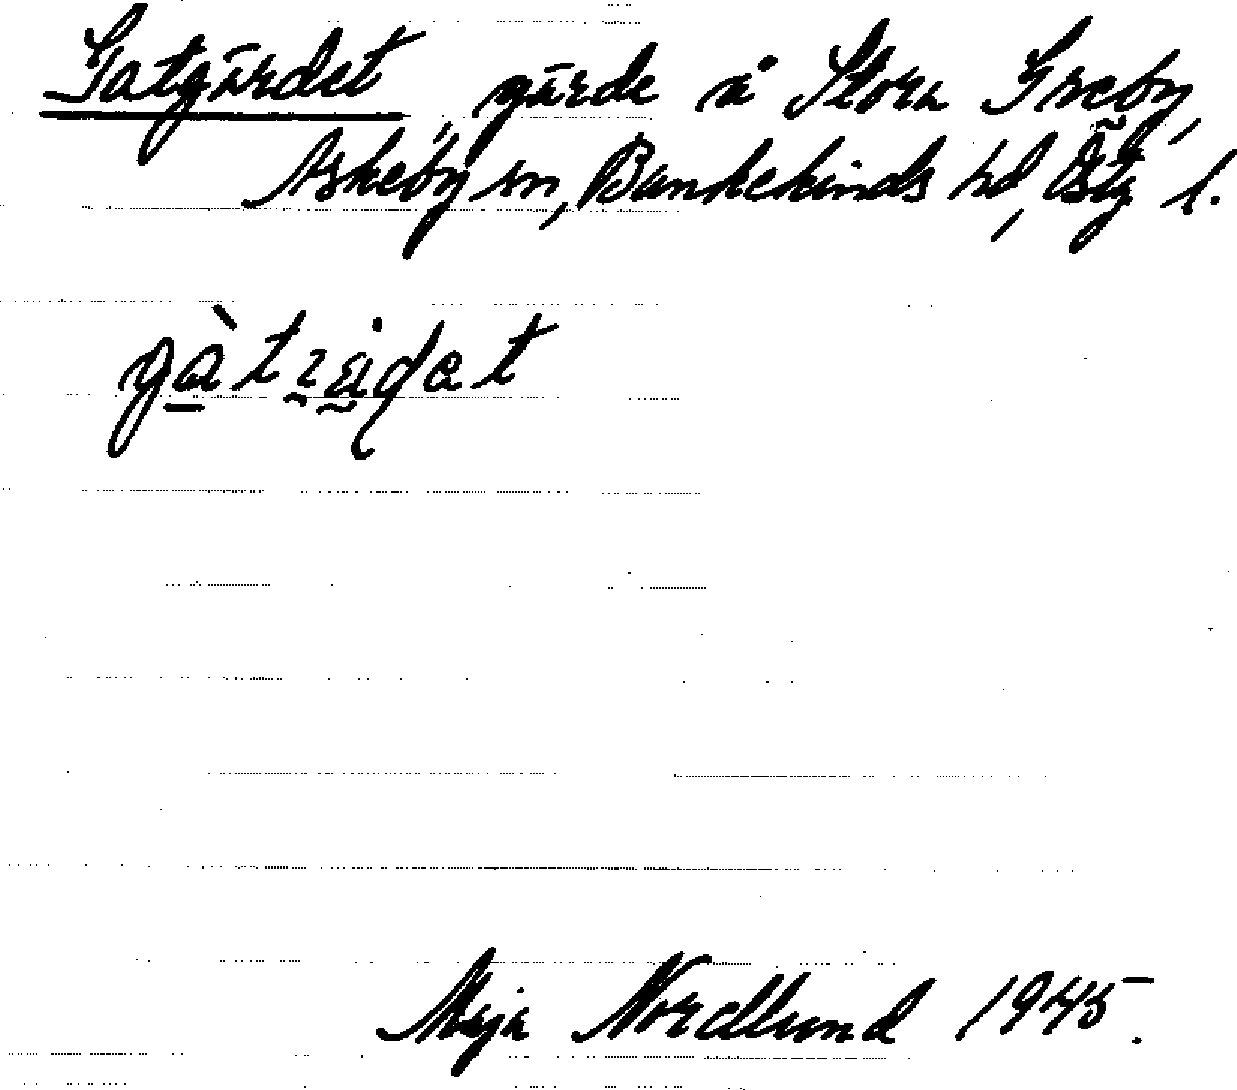 Gatgärdet, gärde å Stora Greby,
Askeby sn, Bankekinds hd, Östg l.
Maja Nordlund 1945.